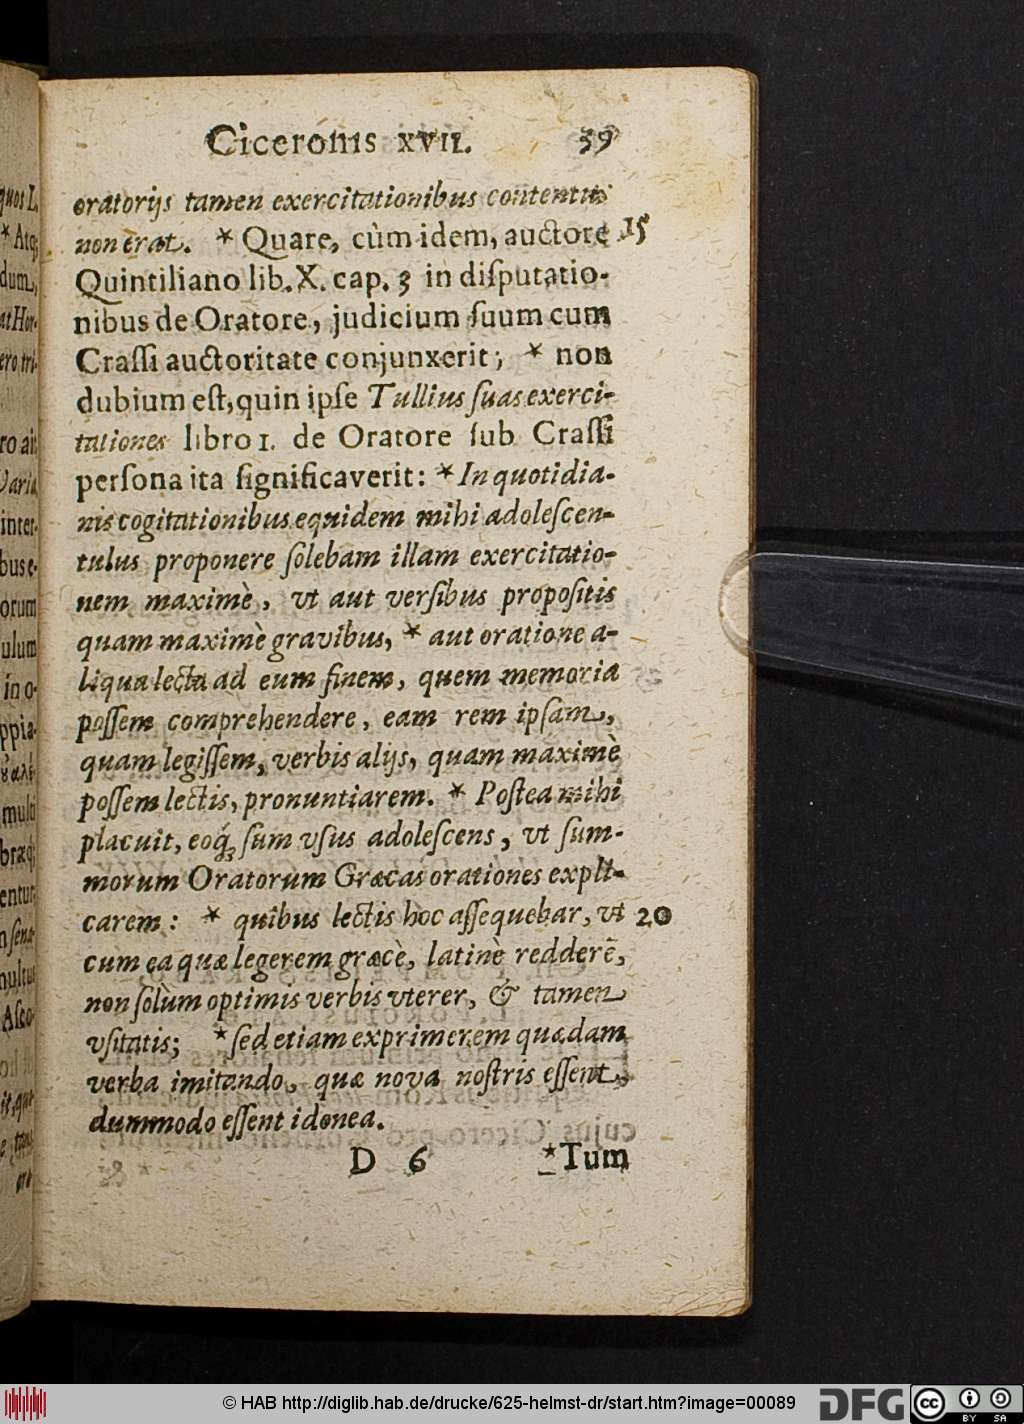 Ciceronis XVII. 59
oratorijs tamen exercitationibus contentus
non erat. * Quare, cùm idem, auctore 15
Quintiliano lib. X. cap. 3 in diſputatio-
nibus de Oratore, judicium ſuum cum
Craſſi auctoritate conjunxerit; * non
dubium eſt, quin ipſe Tullius ſuas exerci-
tationes libro 1. de Oratore ſub Craſſi
perſona ita ſignificaverit: * In quotidia-
nis cogitationibus equidem mihi adoleſcen-
tulus proponere ſolebam illam exercitatio-
nem maximè, vt aut verſibus propoſitis
quam maximè gravibus, * aut oratione a-
liqua lecta ad eum finem, quem memoria
poſſem comprehendere, eam rem ipſam,
quam legiſſem, verbis alijs, quam maximè
poſſem lectis, pronuntiarem. * Poſtea mihi
placuit, eoq́ ſum vſus adoleſcens, vt ſum-
morum Oratorum Græcas orationes expli-
carem: * quibus lectis hoc aſſequebar, vt 20
cum ea quæ legerem græcè, latinè redderē,
non ſolùm optimis verbis vterer, & tamen
vſitatis; * ſed etiam exprimerem quædam
verba imitando, quæ nova noſtris eſſent,
dummodo eſſent idonea.
D 6 *Tum
quos L.
* Atq;
dum,
at Hor-
ero tri-
ro ait
Varia
inter-
bus e-
orum
ulum
in o-
ppia-
multi
bræq;
entur
n ſena-
multus
Aſco-
it, que
e tans
© HAB http://diglib.hab.de/drucke/625-helmst-dr/start.htm?image=00089
DFG
cc
BY SA